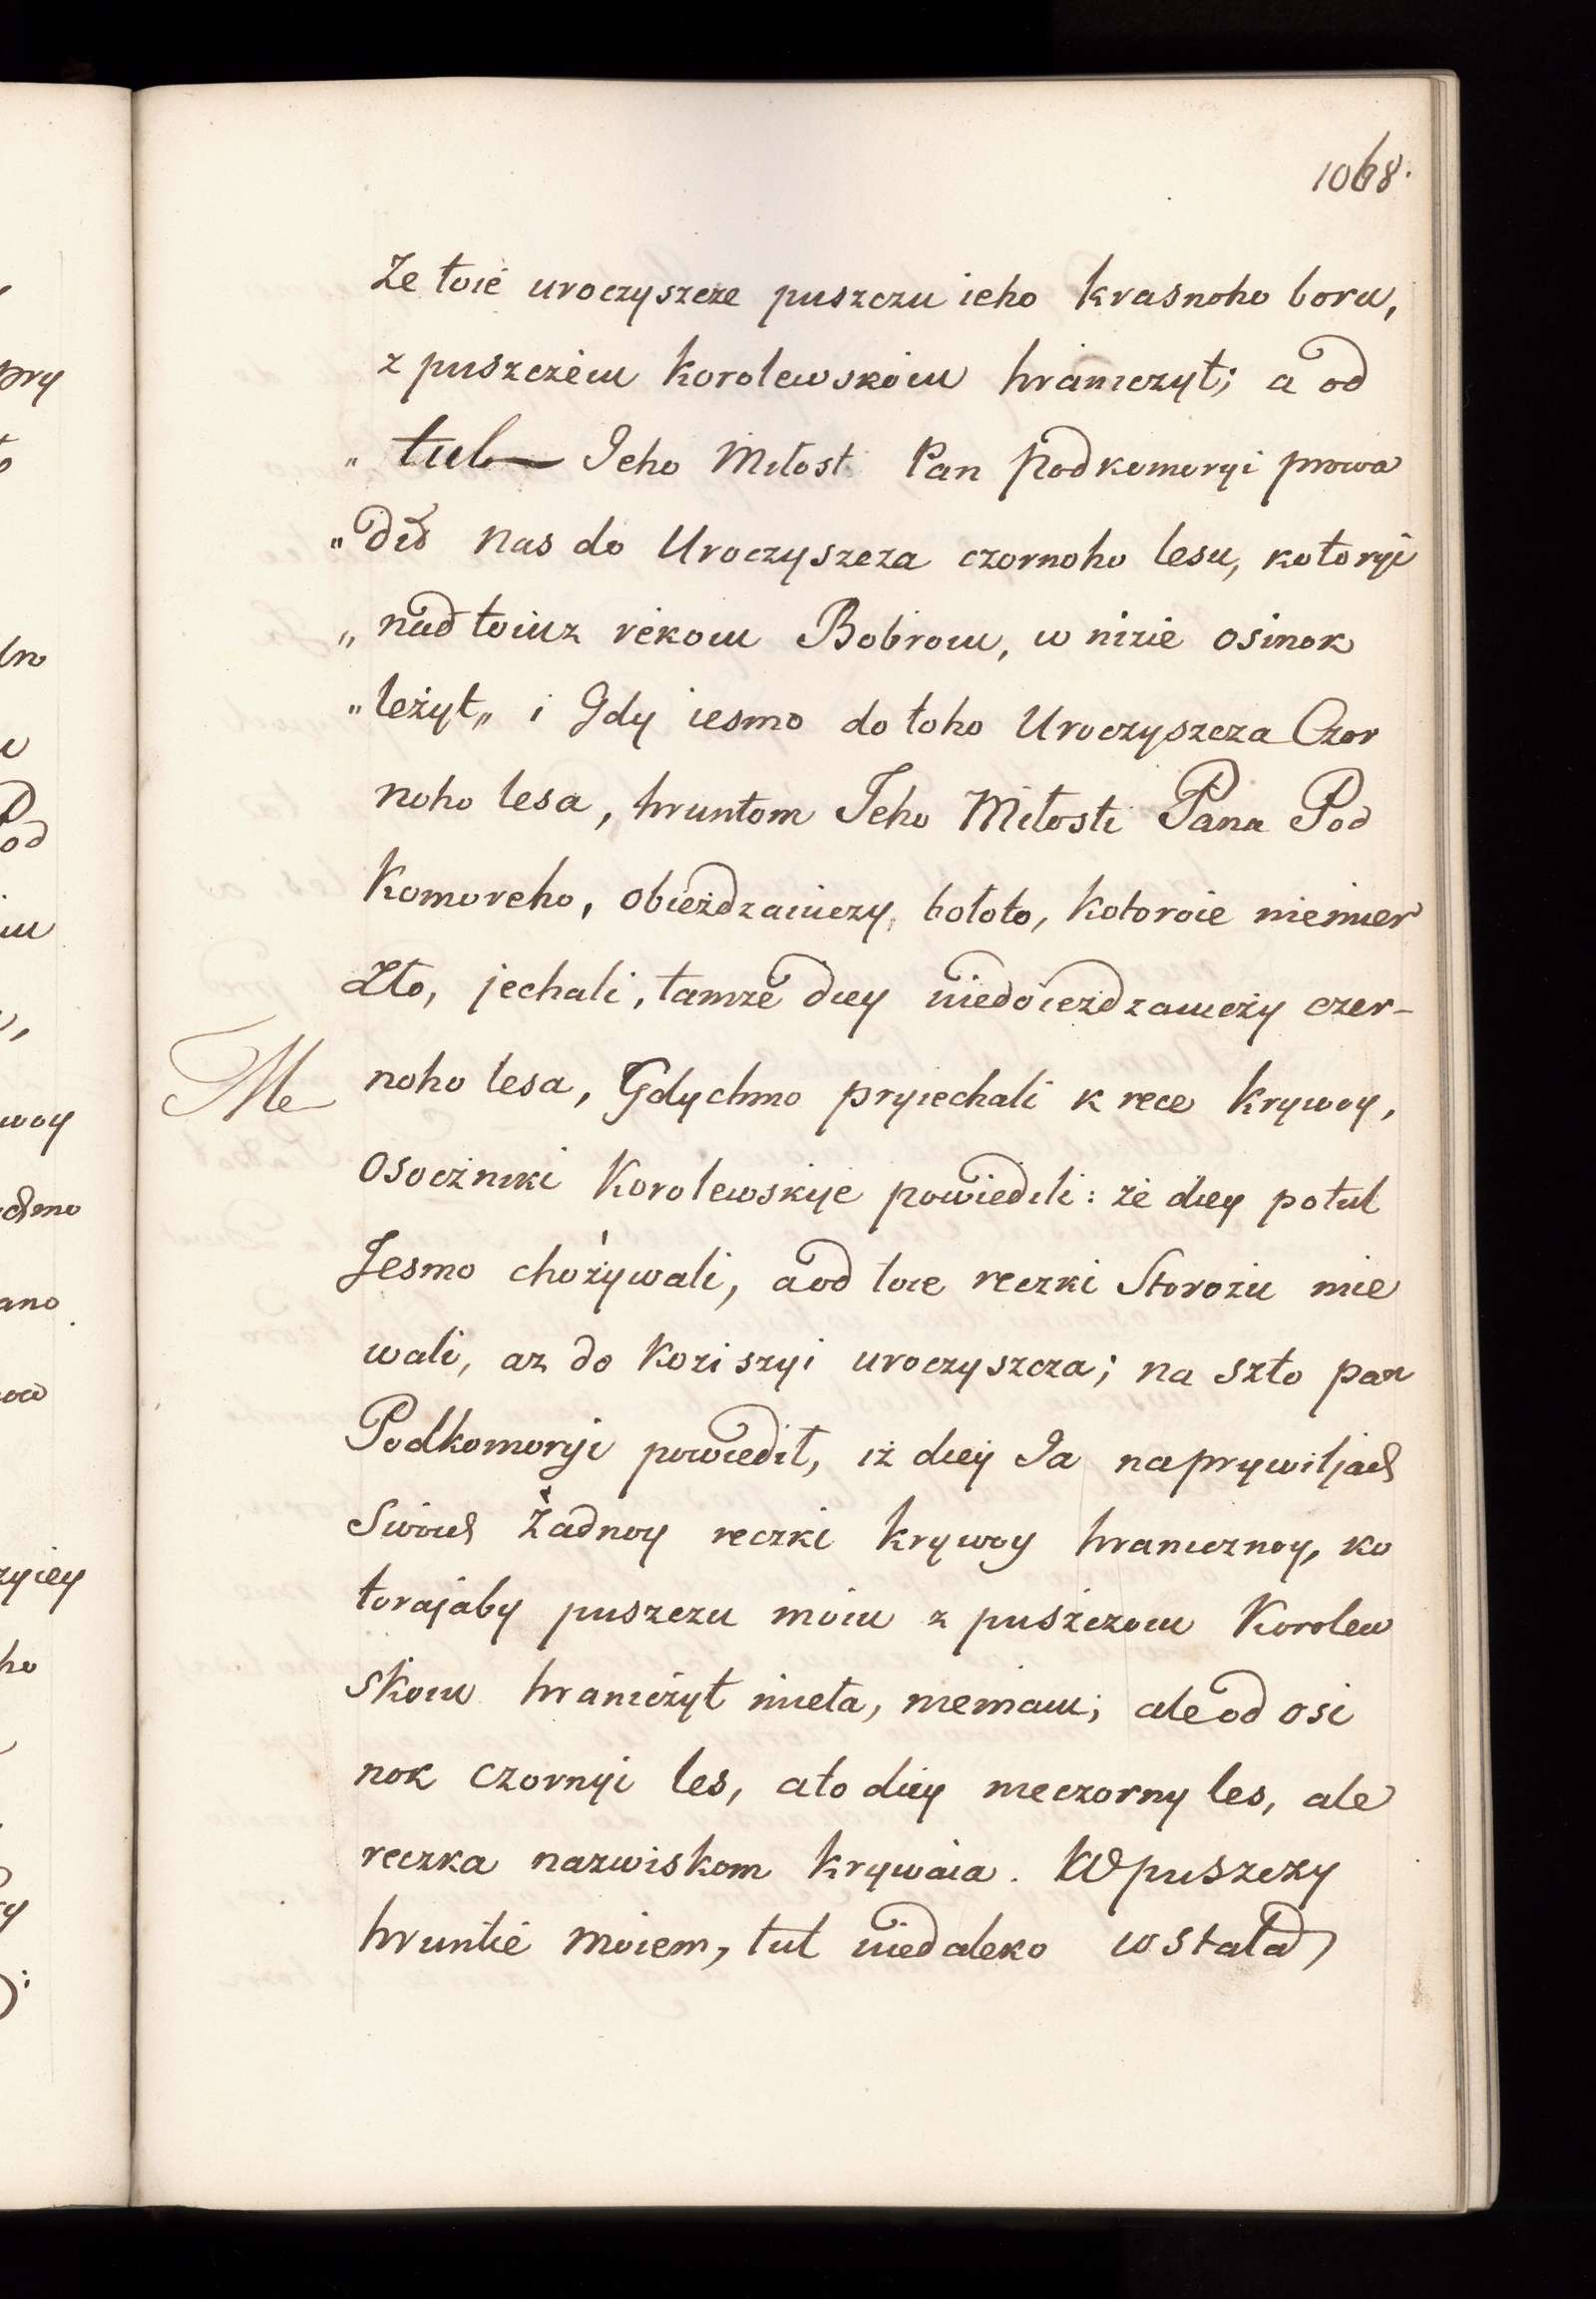 1068.
Że toié uroczyszcze puszczu ieho krasnoho boru,
z puszczéiu korolewskoiu hraniczyt; a od
„ tul— Jeho Miłost Pan Podkomoryi prowa
„ dił nas do Uroczyszcza czornoho lesu, kotoryi
„ nad toiuz rékoiu Bobroiu, w nizie osinok
„ leżyt„ i Gdy iesmo do toho Uroczyszcza Czor
noho lesa, hruntom Jeho Miłosti Pana Pod
Komoreho, obieżdzaiuczy, bołoto, kotoroie niemer
zło, jechali, tamże diey niedoieżdzaiuczy czer-
noho lesa, Gdychmo pryiechali k rece krywoy,
osoczniki Korolewskije powiedili: że diey potul
Jesmo chożywali, a od toie reczki Storożu mie
wali, aż do koziszyi uroczyszcza; na szto pan
Podkomoryi powiedił, iż diey Ja na prywiljach
Swoich Żadnoy reczki krywoy hranicznoy, ko
torajaby puszczu moiu z puszczoiu Korolew
skoiu hraniczyt mieła, niemaiu; ale od osi
nok czornyi les, ato diey nieczorny les, ale
reczka nazwiskom krywaia. W puszczy
hruntie moiem, tut niedaleko wstała
pry
dn
Pod
iu
woy
chmo
ano
zyiey
ho